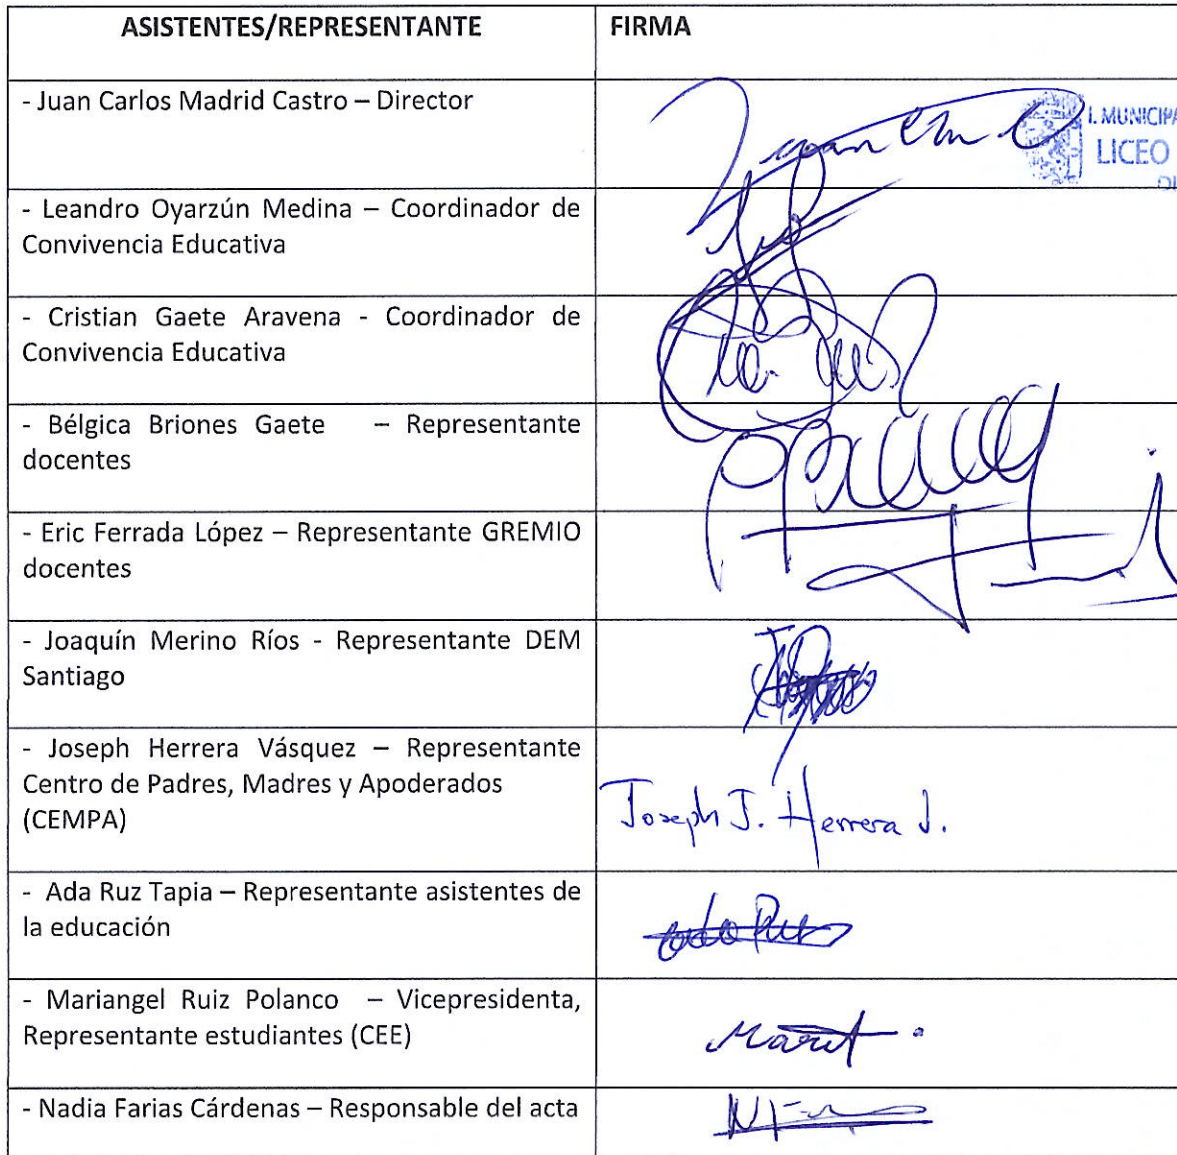 ASISTENTES/REPRESENTANTE FIRMA
- Juan Carlos Madrid Castro – Director
I. MUNICIPA
LICEO
DI
- Leandro Oyarzún Medina – Coordinador de
Convivencia Educativa
- Cristian Gaete Aravena - Coordinador de
Convivencia Educativa
- Bélgica Briones Gaete – Representante
docentes
- Eric Ferrada López – Representante GREMIO
docentes
- Joaquín Merino Ríos - Representante DEM
Santiago
- Joseph Herrera Vásquez – Representante
Centro de Padres, Madres y Apoderados
(CEMPA)
Joseph J. Herrera J.
- Ada Ruz Tapia – Representante asistentes de
la educación
- Mariangel Ruiz Polanco – Vicepresidenta,
Representante estudiantes (CEE)
- Nadia Farias Cárdenas – Responsable del acta